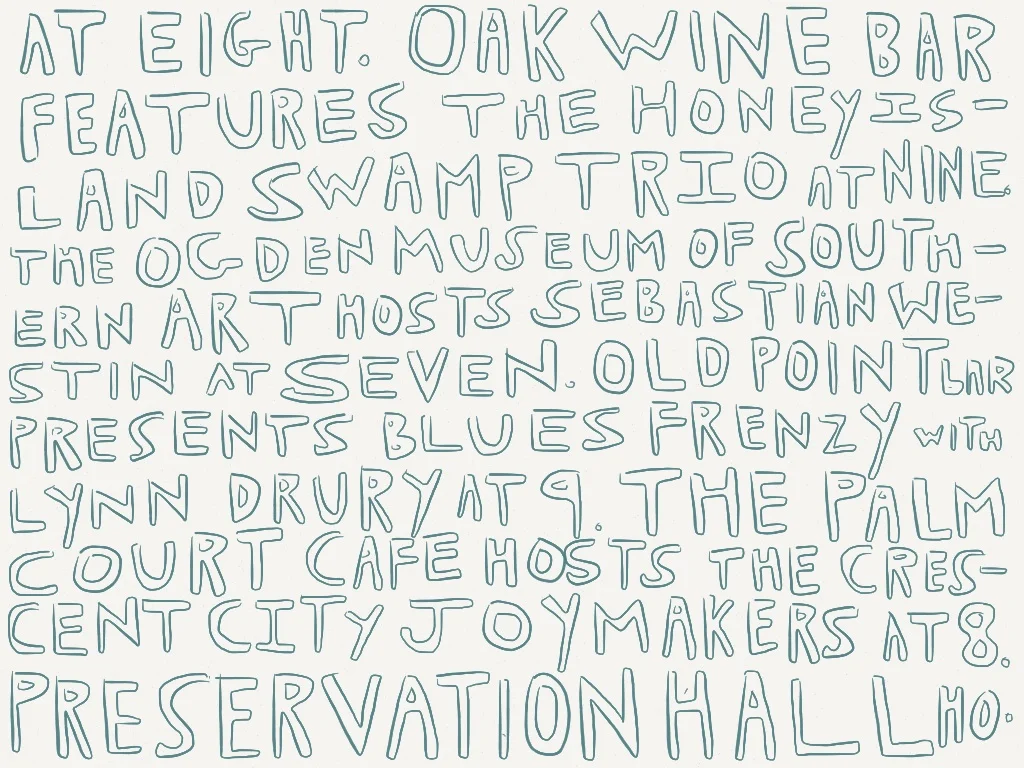 AT EIGHT. OAK WINE BAR
FEATURES THE HONEY IS-
LAND SWAMP TRIO AT NINE.
THE OGDEN MUSEUM OF SOUTH-
ERN ART HOSTS SEBASTIAN WE-
STIN AT SEVEN. OLD POINT BAR
PRESENTS BLUES FRENZY WITH
LYNN DRURY AT 9. THE PALM
COURT CAFE HOSTS THE CRES-
CENT CITY JOYMAKERS AT 8.
PRESERVATION HALL HO·